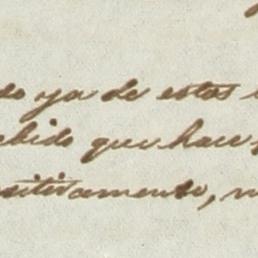 do ya de estos
ebido que hace
ositivamente,